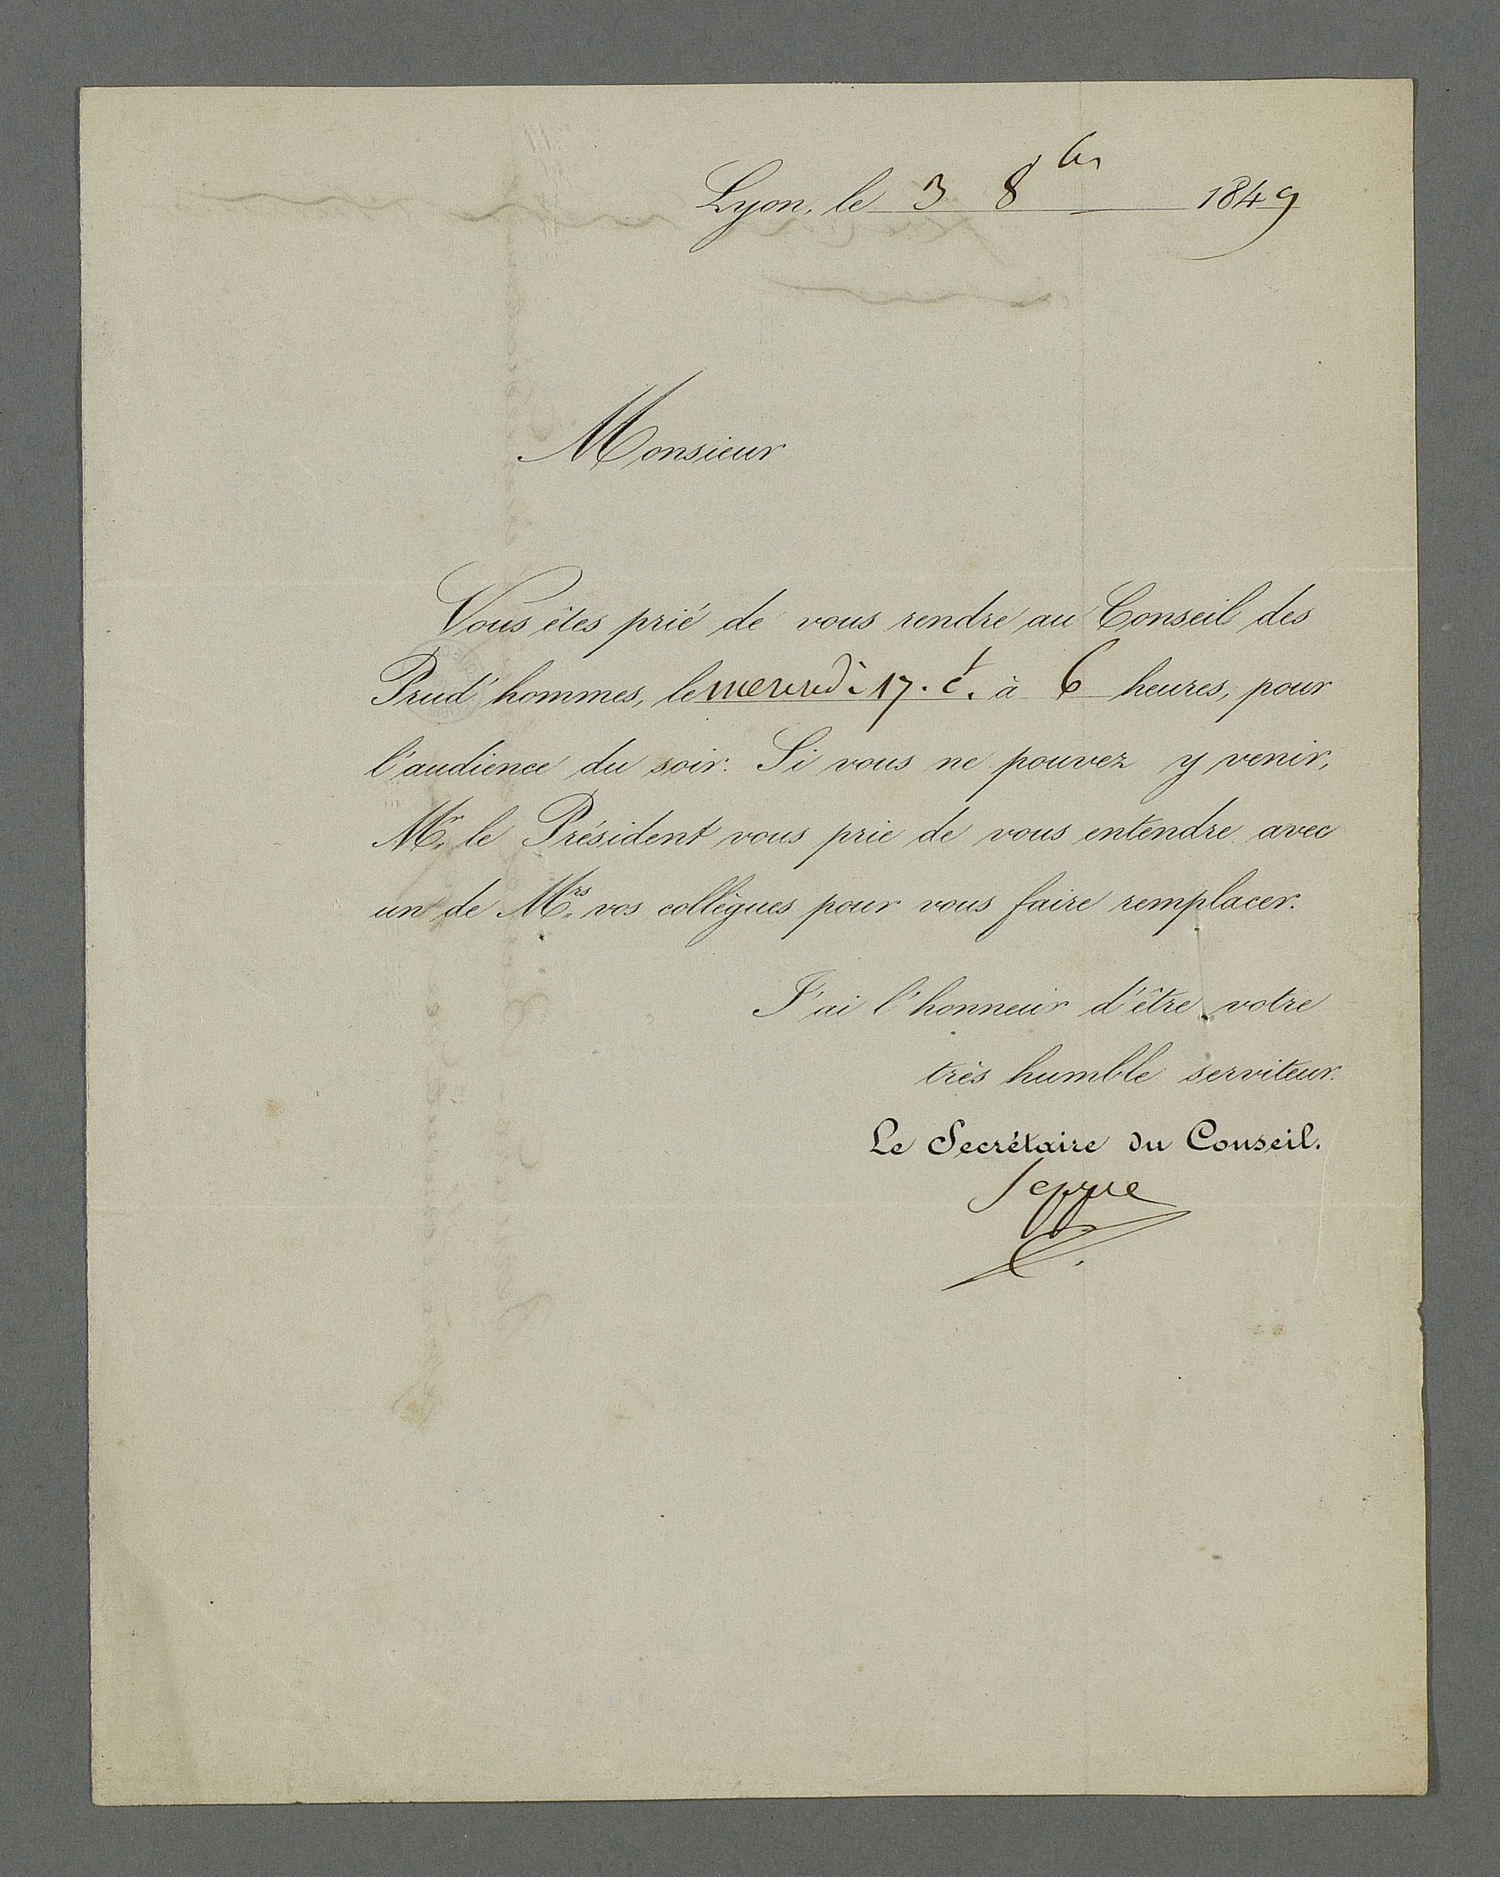 Lyon, le 3 8bre 1849
Monsieur
Vous êtes prié de vous rendre au Conseil des
Prud'hommes, le mercredi 17. ct. à 6 heures, pour
l'audience du soir. Si vous ne pouvez y venir,
Mr. le Président vous prie de vous entendre avec
un de Mrs. vos collègues pour vous faire remplacer.
J'ai l'honneur d'être votre
très humble serviteur.
Le Secrétaire du Conseil.